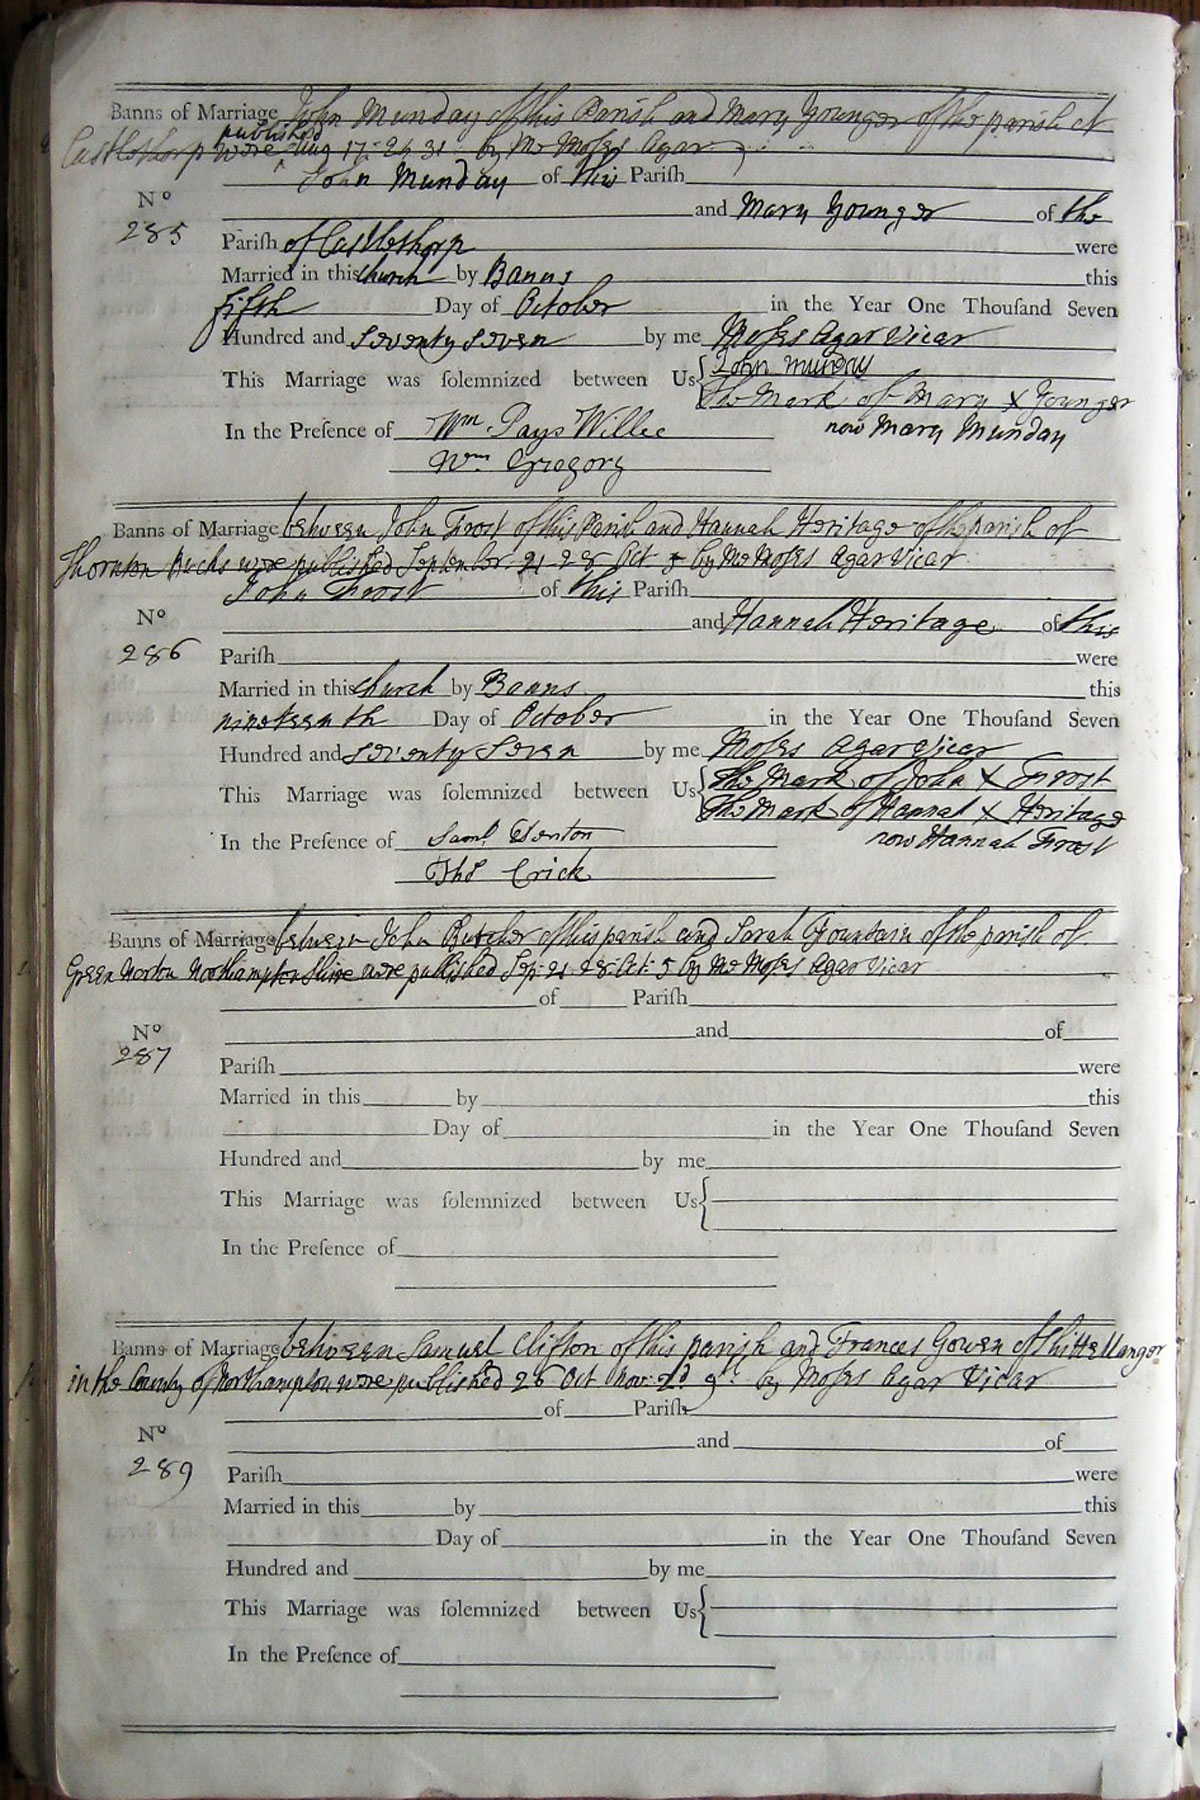 Banns of Marriage John Munday of this Parish and Mary Younger of the parish of
published
Castlethorp were Aug 17. 24 31 by Me Moses Agar
John Munday of this Parish
No
and Mary Younger of the
285
Parish of Castlethorp were
Married in this church by Banns this
fifth Day of October in the Year One Thousand Seven
Hundred and Seventy Seven by me Moses Agar Vicar
John Munday
This Marriage was solemnized between Us
The Mark of Mary X Younger
In the Presence of Wm. Pays Willee now Mary Munday
Wm Gregory
Banns of Marriage between John Frost of this Parish and Hannah Heritage of the parish of
Thornton Bucks were published September 21 28 Oct 5 by Me Moses Agar Vicar
John Frost of this Parish
No
and Hannah Heritage of this
286
Parish were
Married in this church by Banns this
nineteenth Day of October in the Year One Thousand Seven
Hundred and Seventy Seven by me Moses Agar Vicar
The Mark of John X Frost
This Marriage was solemnized between Us
The Mark of Hannah X Heritage
In the Presence of Saml Henton now Hannah Frost
Thos Crick
Banns of Marriage between John Butcher of this parish and Sarah Fountain of the parish of
Green Norton Northamptonshire were published Sep: 21 28 Oct: 5 by Me Moses Agar Vicar
of Parish
No
and of
287
Parish were
Married in this by this
Day of in the Year One Thousand Seven
Hundred and by me
This Marriage was solemnized between Us
In the Presence of
Banns of Marriage between Samuel Clifton of this parish and Frances Gowen of
in the County of Northampton were published 26 Oct Nov: 2d 9th by Moses Agar Vicar
of Parish
No
and of
289
Parish were
Married in this by this
Day of in the Year One Thousand Seven
Hundred and by me
This Marriage was solemnized between Us
In the Presence of